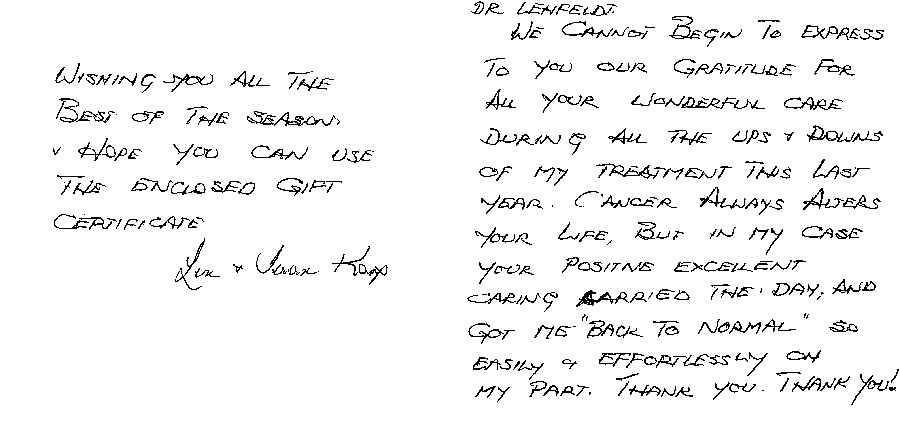 WISHING YOU ALL THE
BEST OF THE SEASON,
& HOPE YOU CAN USE
THE ENCLOSED GIFT
CERTIFICATE
DR LEHFELDT.
WE CANNOT BEGIN TO EXPRESS
TO YOU OUR GRATITUDE FOR
ALL YOUR WONDERFUL CARE
DURING ALL THE UPS & DOWNS
OF MY TREATMENT THIS LAST
YEAR. CANCER ALWAYS ALTERS
YOUR LIFE, BUT IN MY CASE
YOUR POSITIVE EXCELLENT
CARING CARRIED THE DAY, AND
GOT ME "BACK TO NORMAL" SO
EASILY & EFFORTLESSLY ON
MY PART. THANK YOU. THANK YOU!